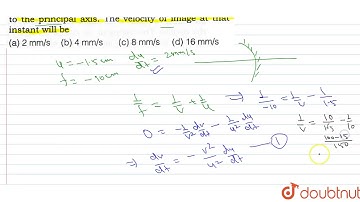 to the principal axis. The velocity of image at that
instant will be
(a) 2 mm/s (b) 4 mm/s (c) 8 mm/s (d) 16 mm/s
u = -1.5cm du/dt = 2mm/s
f = -10cm
1/f = 1/v + 1/u ⇒ 1/-10 = 1/v - 1/1.5
0 = -1/v² dv/dt - 1/u² du/dt
1/v = 10/1.5 - 1/10
100-15/150
⇒ dv/dt = - v²/u² du/dt — 1
doubtnut